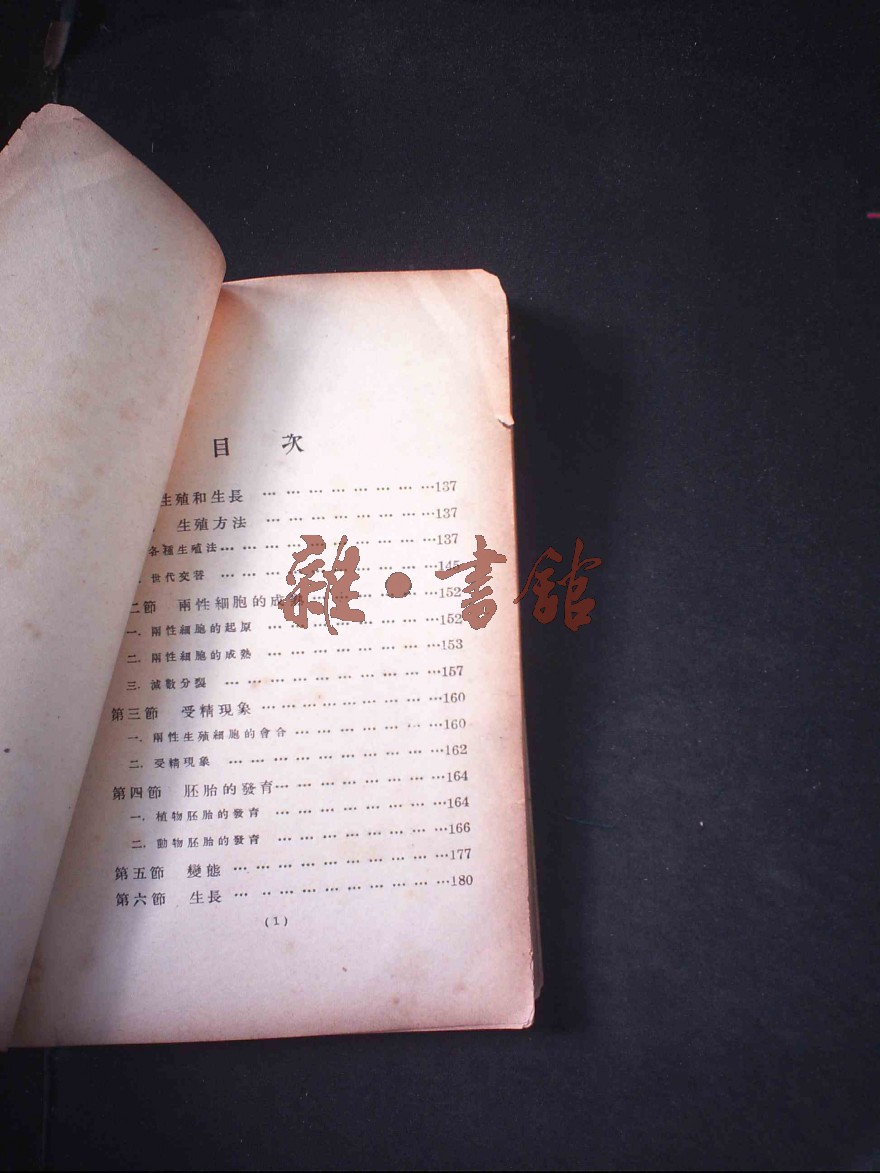 目 次
生殖和生長 … … … … … … … …137
生殖方法 … … … … … … … …137
各種生殖法… … … … … … … … …137
世代交替 … … … … … … … … …145
二節 兩性細胞的成熟 … … … … … …152
一. 兩性細胞的起原 … … … … … … … …152
二. 兩性細胞的成熟 … … … … … … … …153
三. 減數分裂 … … … … … … … … … …157
第三節 受精現象 … … … … … … … …160
一. 兩性生殖細胞的會合 … … … … … … …160
二. 受精現象 … … … … … … … … … …162
第四節 胚胎的發育… … … … … … … …164
一. 植物胚胎的發育 … … … … … … … …164
二. 動物胚胎的發育 … … … … … … … …166
第五節 變態 … … … … … … … … … …177
第六節 生長 … … … … … … … … … …180
(1)
雜·書館